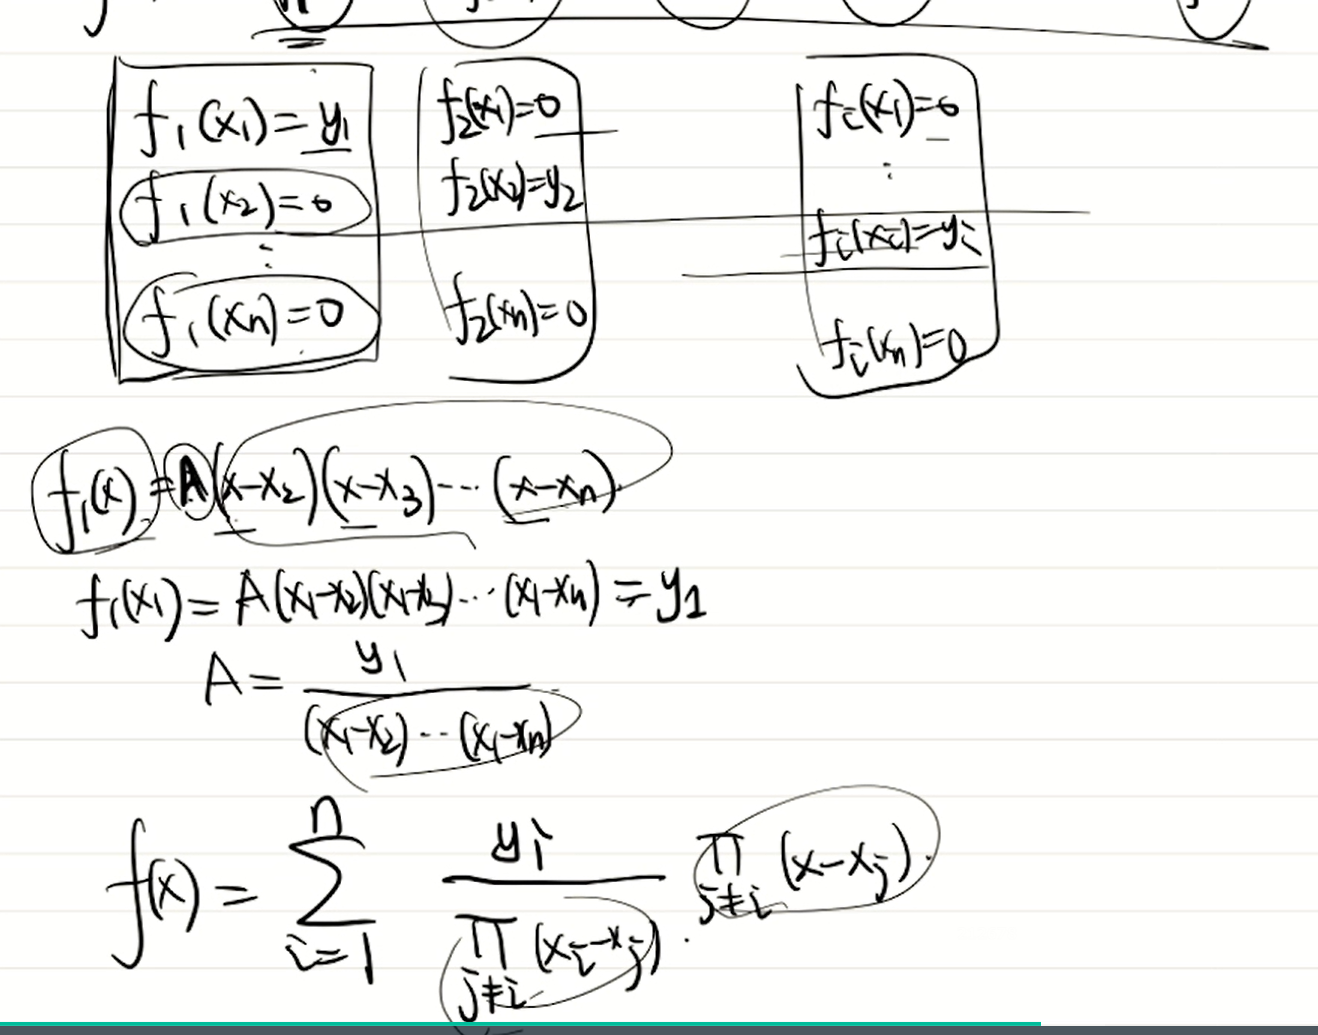 f₁(x₁)=y₁
f₁(x₂)=0
⋮
f₁(xn)=0
f₂(x₁)=0
f₂(x₂)=y₂
f₂(xn)=0
fi(x₁)=0
⋮
fi(xi)=yi
fi(xn)=0
f₁(x)=A(x-x₂)(x-x₃)···(x-xn).
f₁(x₁)=A(x₁-x₂)(x₁-x₃)···(x₁-xn)=y₁
A= y₁ / (x₁-x₂)···(x₁-xn)
f(x) = ∑ i=1 n yi / ∏ j≠i (xi-xj) · ∏ j≠i (x-xj).